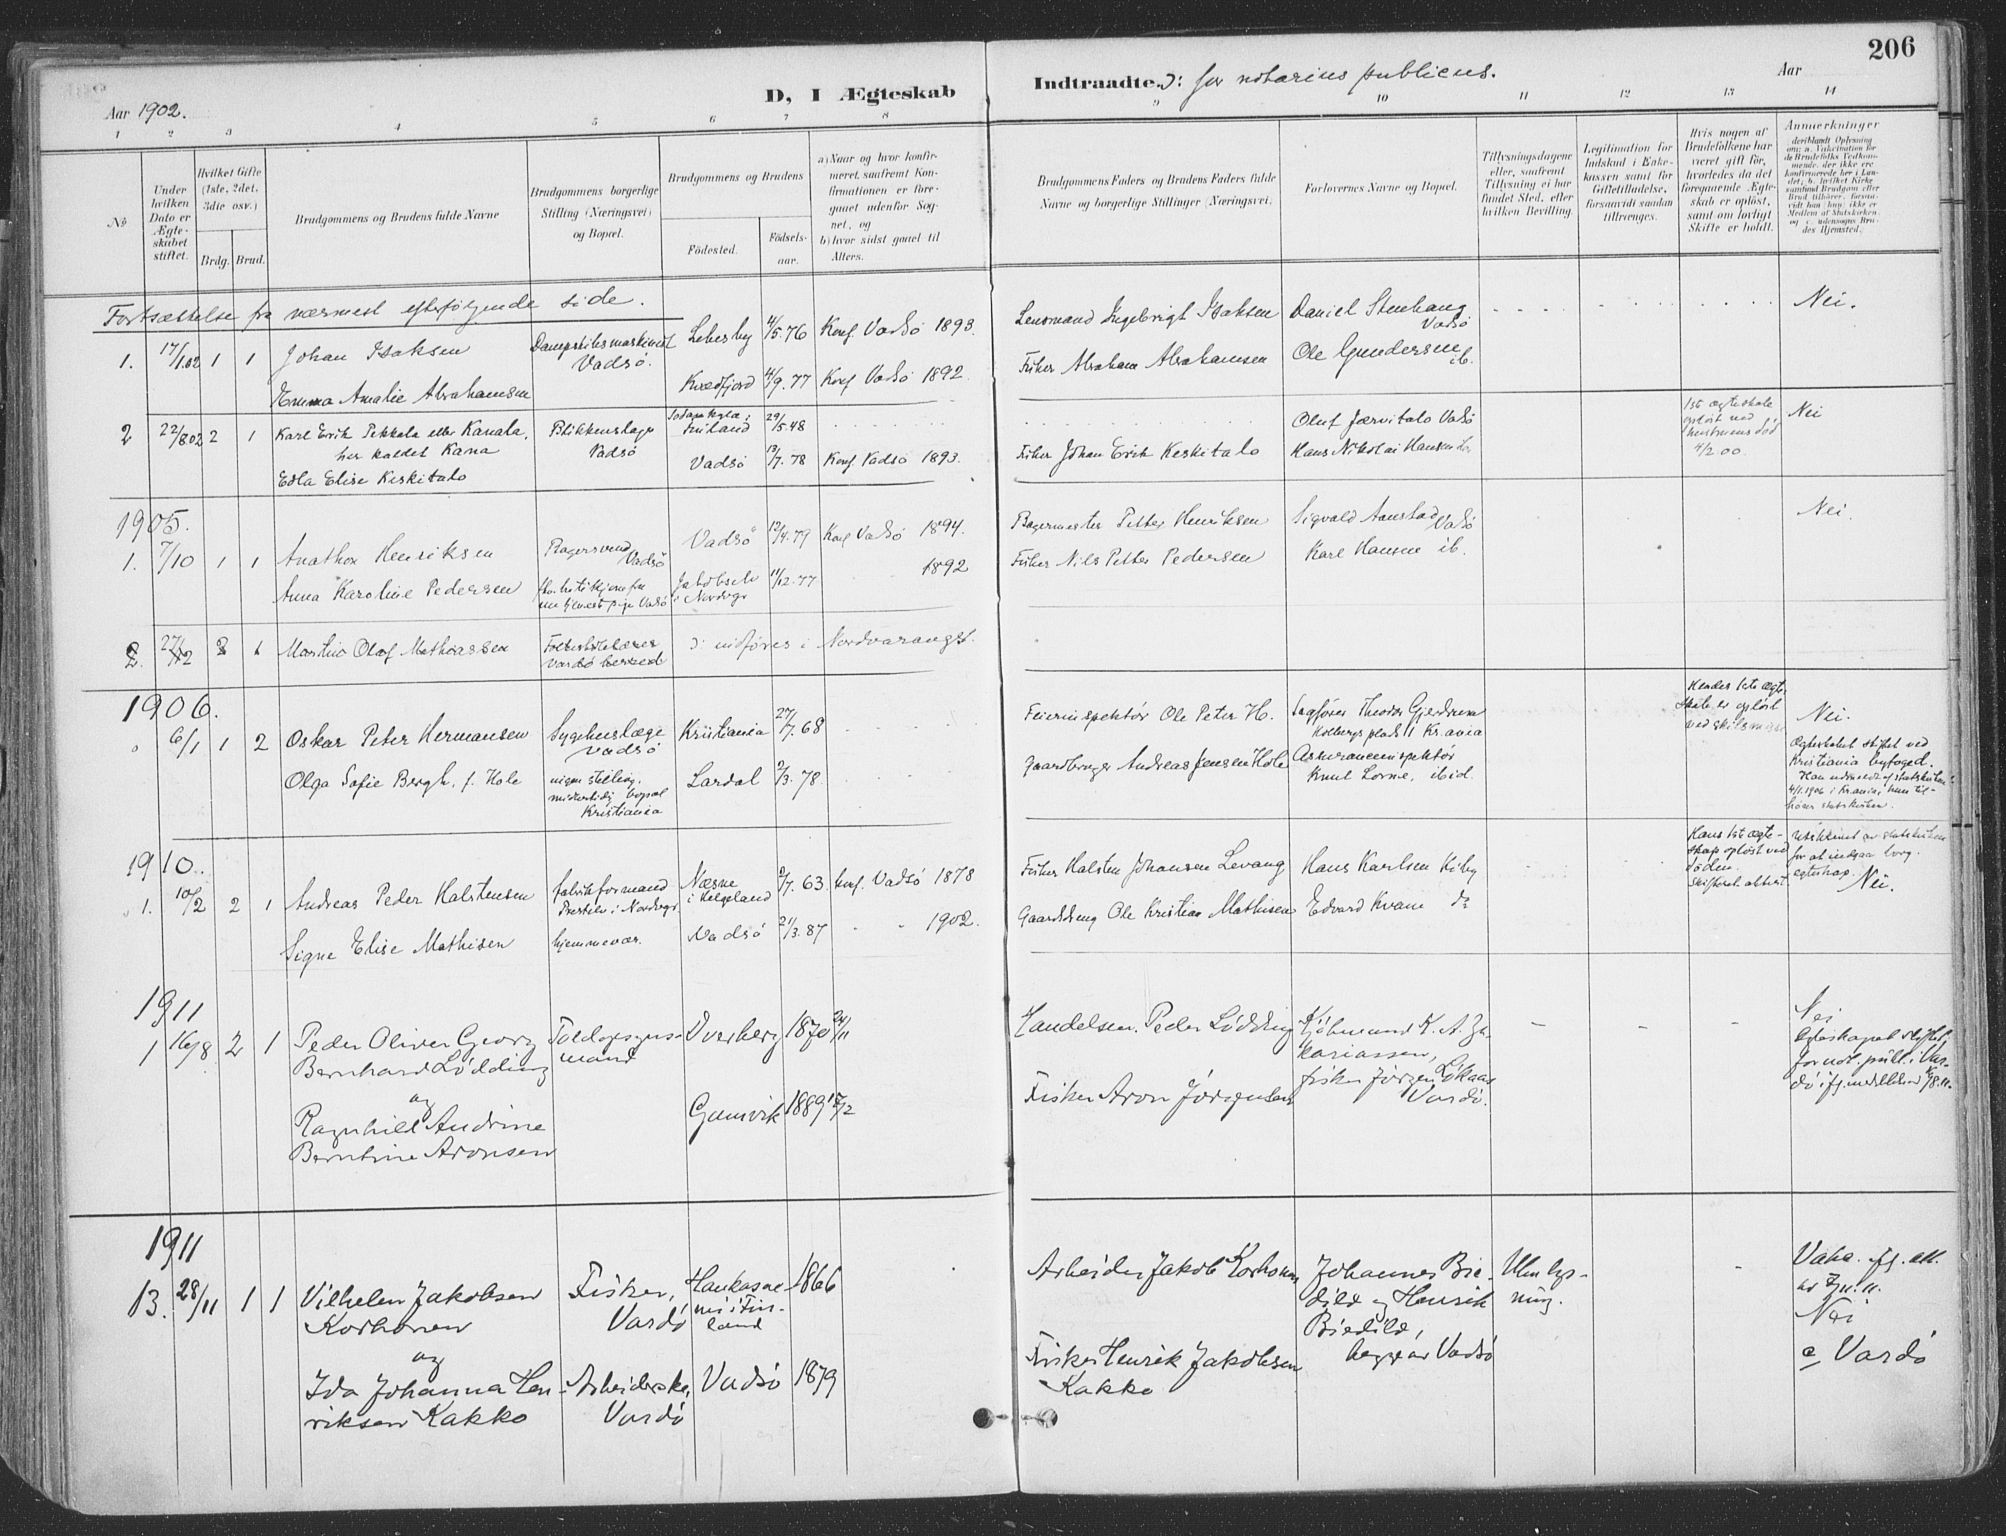 206
Aar 1902.
D, I Ægteskab Indtraadte. ɔ: for notarius publicus.
Aar
1 2 3 4 5 6 7 8 9 10 11 12 13 14
No
Under hvilken Dato er Ægteskabet stiftet.
Hvilket Gifte (1ste, 2det, 3die osv.)
Brdg. Brud.
Brudgommens og Brudens fulde Navne
Brudgommens borgerlige Stilling (Næringsvei) og Bopæl.
Brudgommens og Brudens
Fødested.
Fødselsaar.
a) Naar og hvor konfirmeret, saafremt Konfirmationen er foregaaet udenfor Sognet, og
b) hvor sidst gaaet til Alters.
Brudgommens Faders og Brudens Faders fulde Navne og borgerlige Stillinger (Næringsvei).
Forlovernes Navne og Bopæl.
Tillysningsdagene eller, saafremt Tillysning ei har fundet Sted, efter hvilken Bevilling.
Legitimation for Indskud i Enkekassen samt for Giftetilladelse, forsaavidt saadan tiltrænges.
Hvis nogen af Brudefolkene har været gift før, hvorledes da det foregaaende Ægteskab er opløst, samt om lovligt Skifte er holdt.
Anmerkninger
Fortsættelse fra nærmest efterfølgende side.
1. 17/1.02 1 1 Johan Isaksen Dampskibsmaskinist Vadsö. Lebesby 4/5.76 Konf Vadsö 1893. Lensmand Ingebrigt Isaksen Daniel Stenhaug Vadsö Nei.
Emma Amalie Abrahamsen Kvædfjord 4/9.77 Konf Vadsö 1892. Fisker Abraham Abrahamsen Ole Gundersen ib.
2 22/8 02 2 1 Karl Erik Pekkala eller Kanala, her kaldet Kana Blikkenslager Vadsö Sodankylæ i Finland 29/5.48 Oluf Jærvitalo Vadsö 1ste ægteskab opløst ved hustruens død 4/2.00. Nei
Edla Elise Keskitalo Vadsö 13/7.78 Konf Vadsö 1893. Fisker Johan Erik Keskitalo Hans Nikolai Hansen
1905.
1. 7/10 1 1 Anathon Henriksen Bagersvend Vadsö Vadsö 12/4.79 Konf Vadsö 1894. Bagermester Petter Henriksen Sigvald Aanstad Vadsö Nei.
Anna Karoline Pedersen Jakobselv i Nordvgr 11/12.77 1892 Fisker Nils Petter Pedersen Karl Hansen ib.
2. 27/12 1 Martin Olaf Mathiassen Vardö herred ɔ: indføres i Nordvarangs.
1906.
6/1 1 2 Oskar Peter Hermansen Sygehuslæge Vadsö Kristiania 27/7.68 Feierinspektör Ole Peter H. Sagfører Theodor Gjerdrum Holbergs plads 1 Kr.ania Hendes 1ste ægteskab er opløst ved skilsmisse Nei.
Olga Sofie Bergh, f. Hole ingen stilling, midlertidig bopæl Kristiania Lardal 2/3.78. Gaardbruger Andreas Jensen Hole Assuranceinspektör Knut Lorne, ibid. Ægteskabet stiftet ved Kristiania byfoged. Han udmeldt af statskirken 4/1.1906 i Kr.ania; hun tilhører statskirken.
1910.
1. 10/2 2 1 Andreas Peder Halstensen fabrikformand i Nordvgr Næsne i Helgeland 2/7.63. konf. Vadsö 1878 Fisker Halsten Johansen Levang Hans Karlsen Kiby Hans 1ste ægteskap opløst ved döden. Skifteret. attest. for at indgaa borg. egteskap. Nei.
Signe Elise Mathisen hjemmevær. Vadsö 21/3.87 1902. Ole Kristian Mathisen Edvard Kvam do
1911
1 16/8 2 1 Peder Oliver Georg Bernhard Lödding Toldopsynsmand Overberg 1870 24/11 Handelsm. Peder Lödding Kjöbmand K. A. Zakariassen, Nei
og
Ragnhild Andrine Berntine Aronsen Gamvik 1889 15/2 Fisker Aron Jörgensen fisker Jörgen Lökaas Vardö. Egteskapet stiftet for not. publ. i Vardö ifg. meddelelse 16/8 11.
1911
13. 28/11 1 1 Vilhelm Jakobsen Korhonen Fisker, Vardö Hankasalmi i Finland 1866 Arbeider Jakob Korhonen Johannes Biedilæ og Henrik Biedilæ, begge av Vadsö Uten lysning. Nei
og
Ida Johanna Henriksen Kakko Arbeiderske, Vardö Vadsö 1879 Fisker Henrik Jakobsen Kakko c Vardö